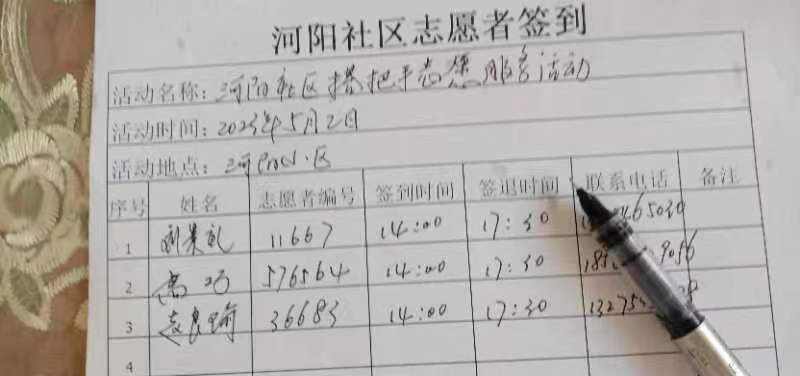 河阳社区志愿者签到
活动名称：河阳社区搭把手志愿服务活动
活动时间：2023年5月2日
活动地点：河阳社区
序号 姓名 志愿者编号 签到时间 签退时间 联系电话 备注
1 11667 14:00 17:30
2 高巧 576564 14:00 17:30
3 36683 14:00 17:30
4